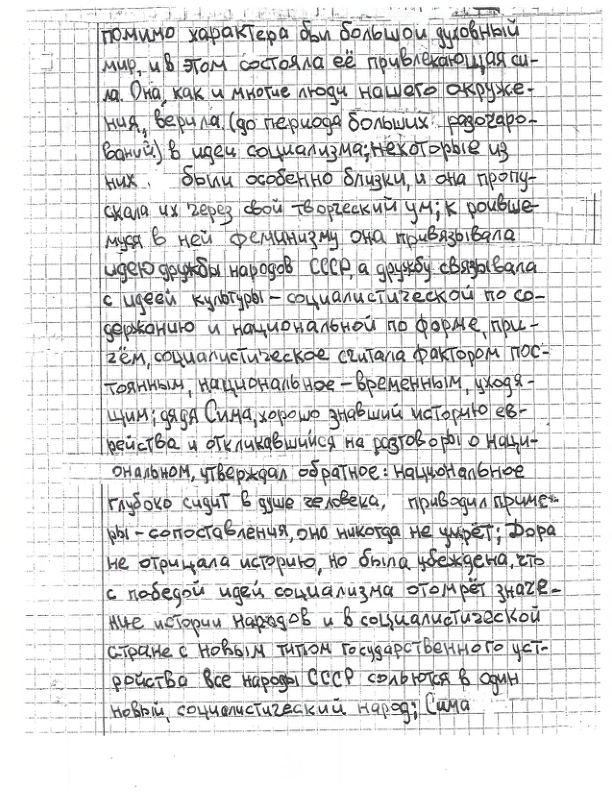 помимо характера был большой духовный
мир, и в этом состояла её привлекающая си-
ла. Она, как и многие люди нашего окруже-
ния, верила (до периода больших разочаро-
ваний) в идеи социализма; некоторые из
них были особенно близки, и она пропу-
скала их через свой творческий ум; к роивше-
муся в ней феминизму она привязывала
идею дружбы народов СССР, а дружбу связывала
с идеей культуры – социалистической по со-
держанию и национальной по форме, при-
чём, социалистическое считала фактором пос-
тоянным, национальное – временным, уходя-
щим; дядя Сима, хорошо знавший историю ев-
рейства и откликавшийся на разговоры о наци-
ональном, утверждал обратное: национальное
глубоко сидит в душе человека, приводил приме-
ры – сопоставления, оно никогда не умрёт; Дора
не отрицала историю, но была убеждена, что
с победой идей социализма отомрёт значе-
ние истории народов и в социалистической
стране с новым типом государственного уст-
ройства все народы СССР сольются в один
новый, социалистический народ; Сима